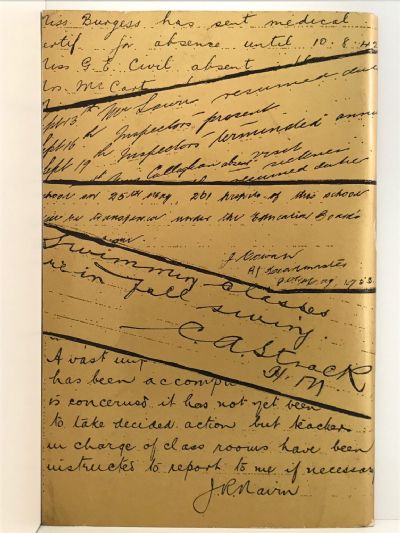 iss Burgess has sent medical
ertif. for absence until 10.8.42
iss G. E. Civil absent
rs. McCart
ept 13th Mr Lawn resumed duty
ept 16th Inspectors present
ept 19th Inspectors terminded annu
Miss Callaghan absent visit sickness
resumed duties
hool on 25th May, 201 pupils of this school
under the Education Board's
J Cowan
Swimming Classes
re in full swing.
C A Strack
H. M
A vast imp
has been accompli
is concerned it has not yet been
to take decided action but teachers
in charge of class rooms have been
instructed to report to me if necessar
J. R. Navin